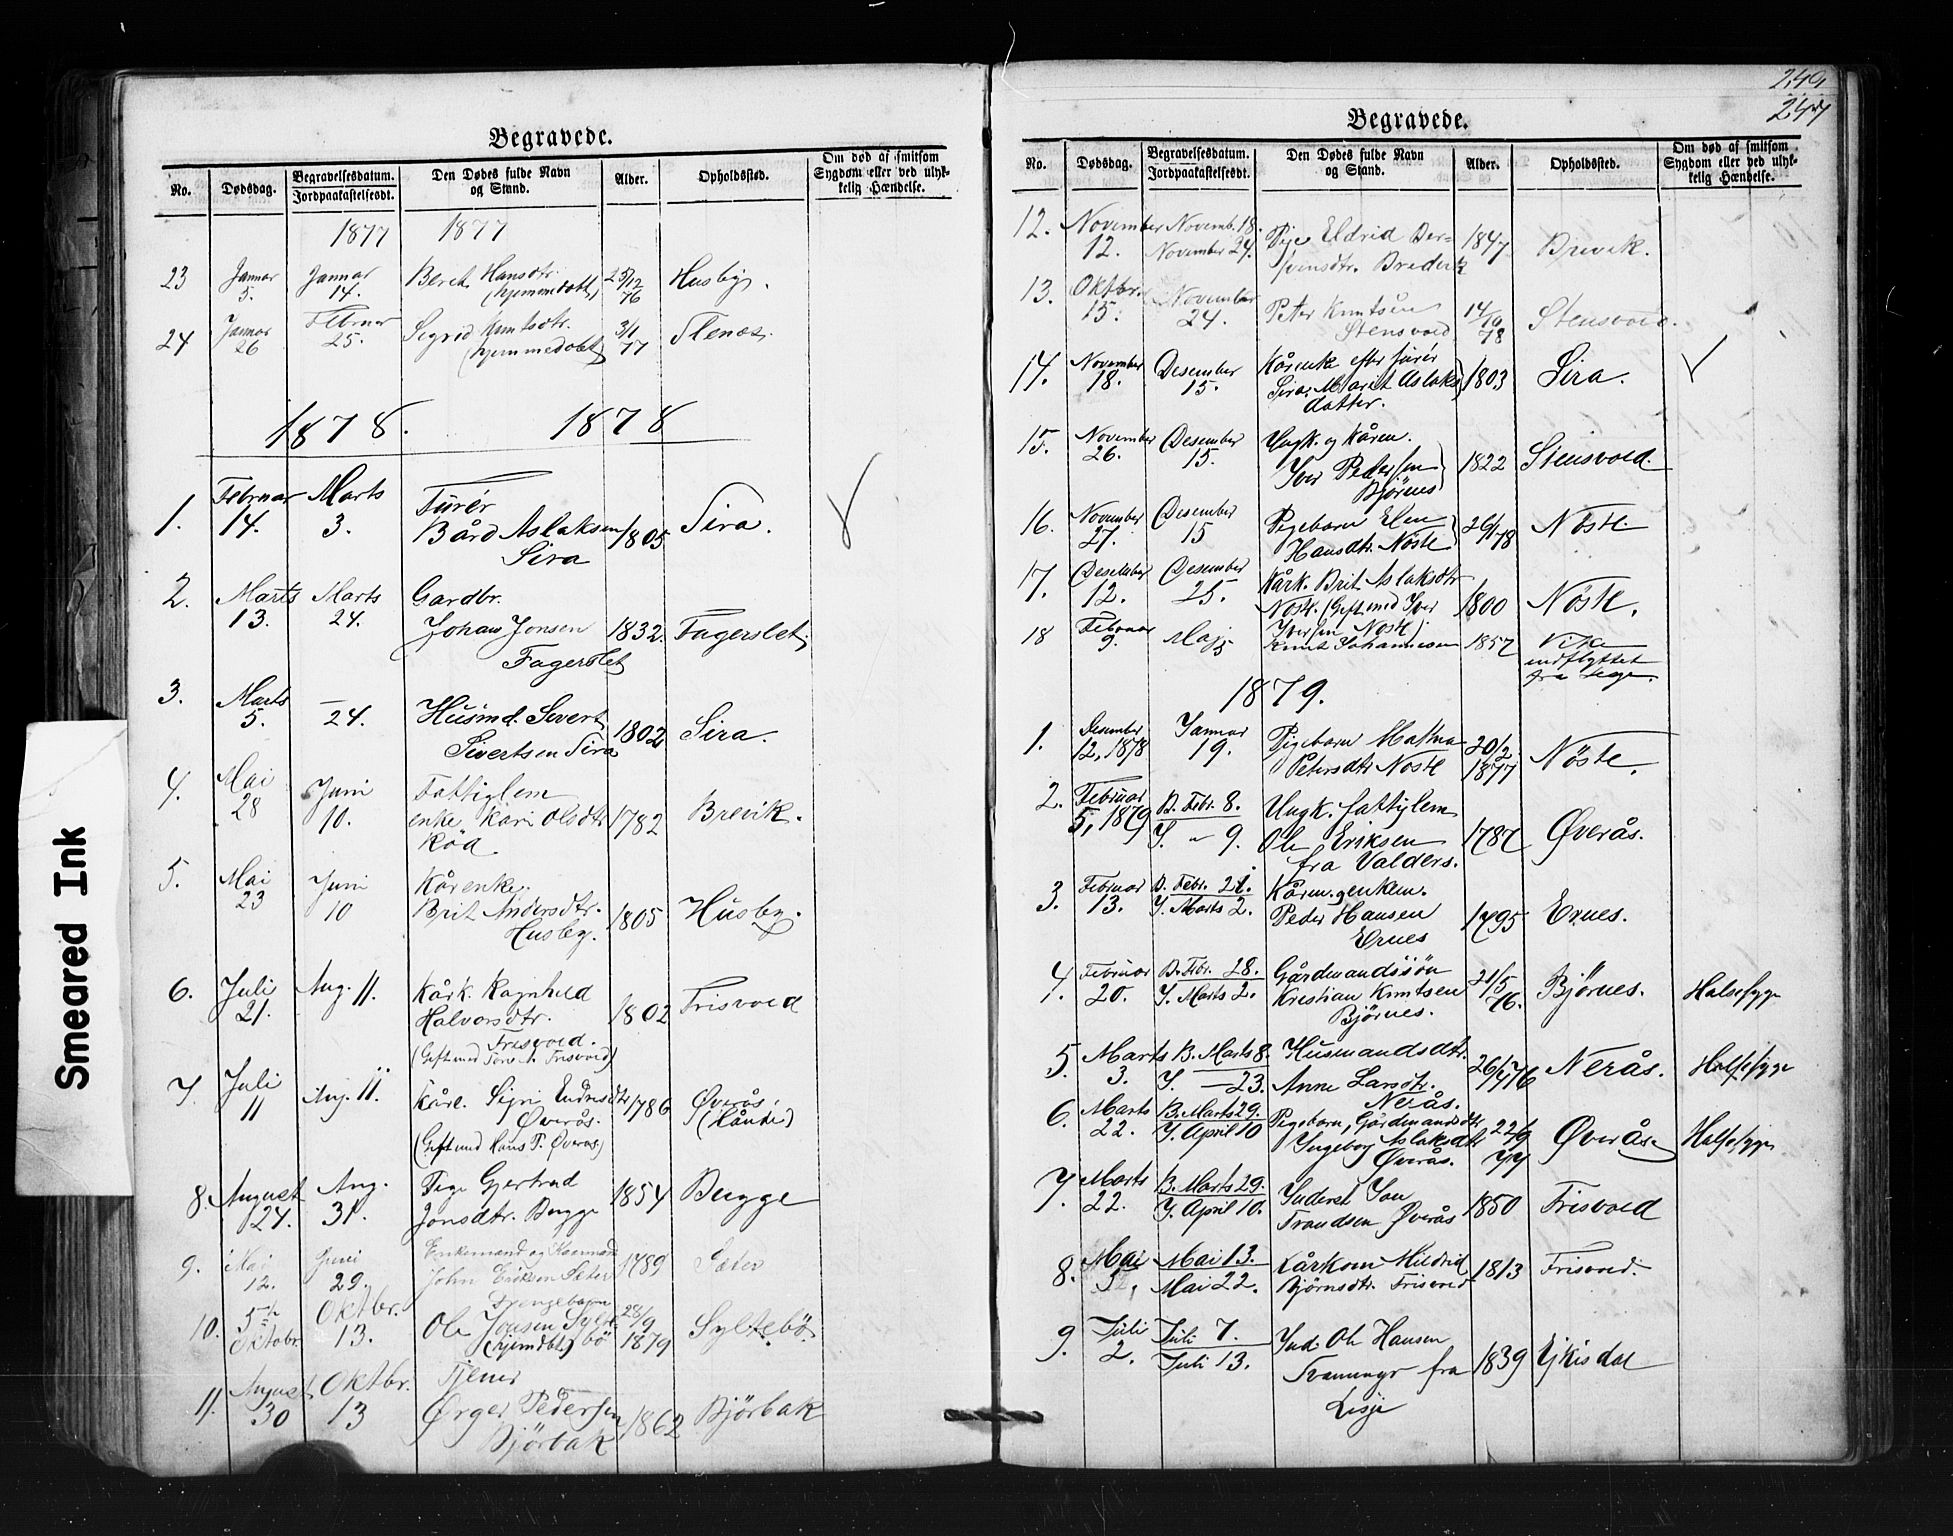 Begravede.
No. Dødsdag. Begravelsesdatum. Jordpaakastelsesdt. Den Dødes fulde Navn og Stand. Alder. Opholdssted. Om død af smitsom Sygdom eller ved ulykkelig Hændelse.
1877 1877
23 Januar 5. Januar 14. Beret Hansdtr. (hjemmedøbt) 25/12 76 Husby.
24 Januar 26 Februar 25. Sigrid Knutsdtr. (hjemmedøbt) 3/1 77 Stenøs.
1878. 1878
1. Februar 14. Marts 3. Furér
Bård Aslaksen 1805 Sira.
Sira
2. Marts 13. Marts 24. Gardbr.
Johans Jonsen 1832. Fagerslet.
Fagerslet
3. Marts 5. — 24. Husmd. Sivert
Sivertsen Sira 1802 Sira.
4. Mai 28 Juni 10. Fattiglem
enke Kari Olsdtr 1782 Brevik.
Rød
5. Mai 23 Juni 10 Kårenke.
Brit Andersdtr. 1805 Husby.
Husby.
6. Juli 21. Aug. 11. Kårk. Ragnhild
Halvorsdtr. 1802 Frisvold
Frisvold.
(Gift med Tore A. Frisvold)
7. Juli 11 Aug. 11. Kårk. Sigri Endresdtr 1786 Øverås.
Øverås.
(Gift med Hans P. Øverås)
8. August 24. Aug. 31. Pige Gjertrud
Jonsdtr. Bugge 1854 Bugge
9. Mai 12. Juni 29. Enkemand og Kaarmand
John Eriksen Sæter 1789 Sæter
10. 5te Oktobr. Oktbr. 13. Drengebarn
Ole Jonsen Syltebø 28/9 1879 Syltebø
(hjemdbt.)
11. August 30 Oktbr. 13 Tjener
Ørger Pedersen 1862 Bjørbak
Bjørbak
249
247
Begravede.
No. Dødsdag. Begravelsesdatum. Jordpaakastelsesdt. Den Dødes fulde Navn og Stand. Alder. Opholdssted. Om død af smitsom Sygdom eller ved ulykkelig Hændelse.
12. November 12. Novemb. 18. November 24. Pige Eldrid 1847 Brevik.
13. Oktbr. 15. November 24. Peter Knutsen
Stensvold 14/10 78 Stensvold.
14. November 18. Desember 15. Kårenke efter furér
Sira, Marit Aslaks 1803 Sira.
datter.
15. November 26. Desember 15. Ungk. og Kårm.
Iver Pedersen 1822 Stensvold.
Bjørnes
16. November 27. Desember 15 Pigebarn Elen
Hansdtr. Nøste 26/1 78 Nøste.
17. Desember 12. Desember 25. Kårk. Brit Aslaksdtr
Nøste. (Gift med Iver 1800 Nøste.
Iversen Nøste)
18 Februar 9. Maj 5 Knut Johannesen 1857 Vike
indflyttet
fra Lesje.
1879.
1. Desember 12, 1878 Januar 19. Pigebarn Mathea
Petersdtr Nøste 20/2 1877 Nøste.
2. Februar 5, 1879 B. Febr. 8. J. " 9. Ungk. fattiglem
Ole Eriksen 1787 Øverås.
fra Valders.
3. Februar 13. B. Febr. 21. J. Marts 2. Kårm. enkem.
Peder Hansen 1795 Ernes.
Ernes
4. Februar 20. B. Febr. 28. J. Marts 2. Gårdmandssøn
Kristian Knutsen 21/5 76. Bjørnes. Halsesyge
Bjørnes.
5. Marts 3. B. Marts 8. J. — 23. Husmandsdtr.
Anne Larsdtr. 26/4 76 Nerås. Halsesyge
Nerås.
6. Marts 22. B. Marts 29. J. April 10 Pigebarn, Gårdmandsdtr
Ingeborg Aslaksdtr 22/9 77 Øverås. Halsesyge
Øverås.
7. Marts 22. B. Marts 29. J. April 10. Inderst Jon
Trondsen Øverås 1850 Frisvold
8. Mai Mai 13. Mai 22. Kårkone Mildrid
Bjørnsdtr. Frisvold 1813 Frisvold.
9. Juli 2. Juli 7. Juli 13. Ind. Ole Hansen
fra 1839 Ejkisdal
Lesje
Smeared Ink